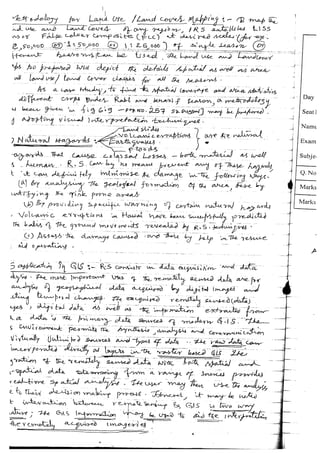 Methodology for Land Use / Land Cover Mapping :- To map the
land use and Land Covers of any region, IRS satellites LISS
False Colour Composites (FCC) at desired scales (for eg.
2,50,000 or 1:50,000 or 1:25,000) of single season or
different seasons can be used. The land use and Landcover
maps so prepared will depict the details spatial as well as areas
of land use / land cover classes for all the seasons.
As a case study, to find the spatial coverage and area statistics
different crops under Rabi and Kharif season, a methodology
is been given in fig
adopting visual interpretation techniques.
Landslides
Volcanic eruptions
Natural Hazards: Earthquakes are natural
Floods
hazards that cause colossal losses - both material as well
as human. R.S can by no means prevent any of these hazards
it can definitely minimise the damage in the following ways.
(a) By analysing the geological formation of the area, there by
identifying the risk prone areas.
(b) By providing specific warning of certain natural hazards
Volcanic eruptions in Hawaii have been successfully predicted
the bases of the ground movements revealed by R.S. techniques.
(c) Assess the damage caused and there by help in the rescue
and operations.
Application in GIS :- R.S consists in data acquisition and data
analysis. The most important use of the remotely sensed data are for
analysis of geographical data acquired by digital images and
along temporal changes. The acquired remotely sensed (data)
digital data as well as the information extracted from
data is the primary data sources of modern G.I.S. The
environment permits the synthesis, analysis and communication
virtually unlimited sources and types of data. The raw data can
incorporated directly as layers in the raster based GIS. The
integration of the remotely sensed data with both spatial and
spatial data streaming from a range of sources provides
spatial analysis. The user may then use the analysis
to their decision making process. However, it may be noted
interaction between remote sensing & GIS is two way
The GIS Information may be used to aid the interpretation
the remotely acquired imageries
Day
Seat
Nam
Exam
Subje
Q. No
Marks
Marks